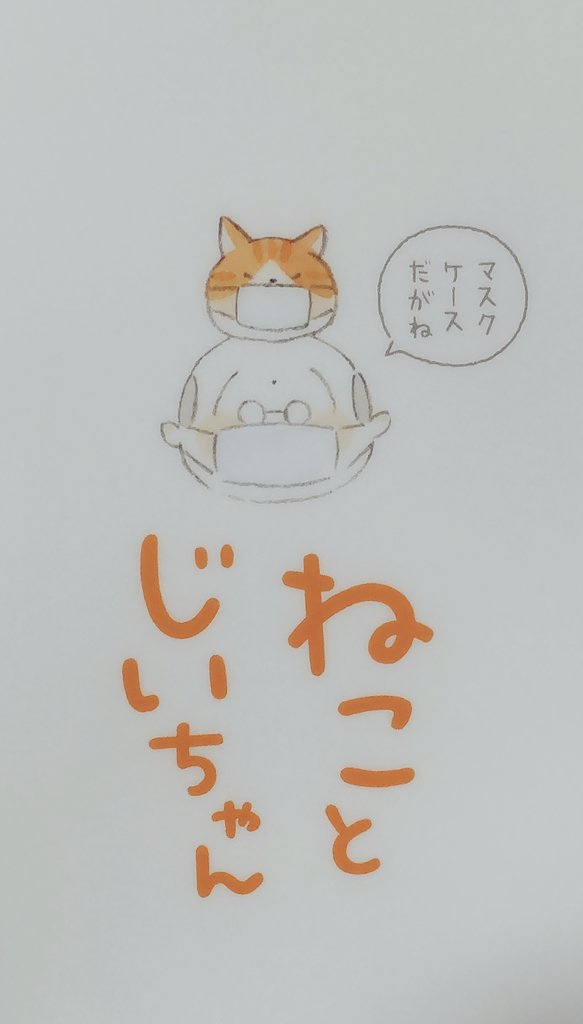 マスク
ケース
だがね
ねこと
じいちゃん